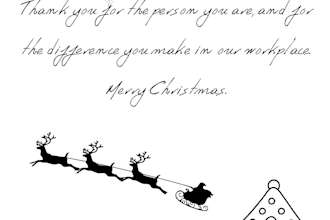 Thank you for the person you are, and for
the difference you make in our workplace.
Merry Christmas.